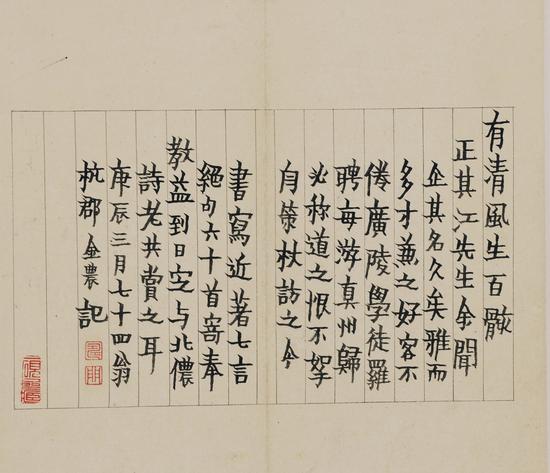 有清風生百骸
正其江先生余聞
企其名久矣雅而
多才兼之好客不
倦廣陵學徒羅
聘每游真州歸
必稱道之恨不挐
自策杖訪之今
書寫近著七言
絕句六十首寄奉
教益到日定与北儂
詩老共賞之耳
庚辰三月七十四翁
杭郡金農記